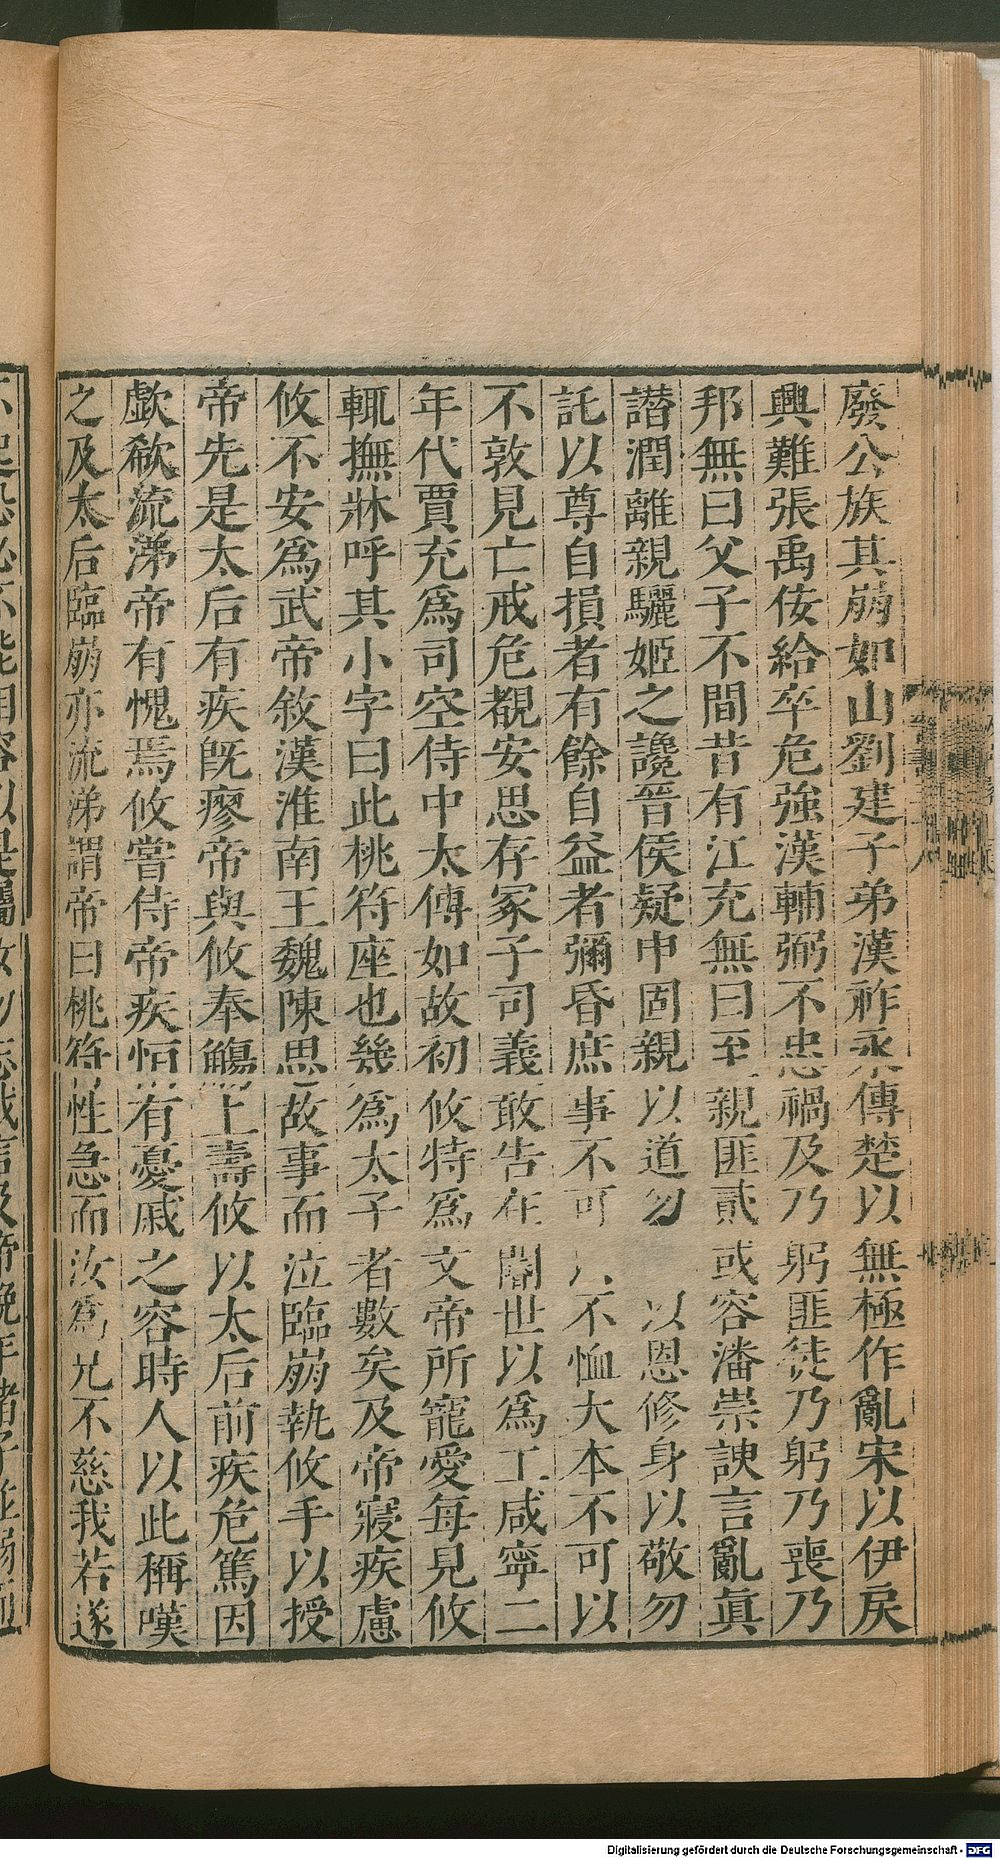 廢公族其崩如山劉建子弟漢祚永傳楚以無極作亂宋以伊戾
興難張禹佞給卒危強漢輔弼不忠禍及乃躬匪徒乃躬乃喪乃
邦無曰父子不間昔有江充無曰至親匪貳或容潘崇諛言亂眞
譖潤離親驪姬之讒晉侯疑申固親以道勿以恩修身以敬勿
託以尊自損者有餘自益者彌昏庶事不可不恤大本不可以
不敦見亡戒危覩安思存冢子司義敢告在閽世以爲工咸寧二
年代賈充爲司空侍中太傅如故初攸特爲文帝所寵愛每見攸
輒撫牀呼其小字曰此桃符座也幾爲太子者數矣及帝寢疾慮
攸不安爲武帝敘漢淮南王魏陳思故事而泣臨崩執攸手以授
帝先是太后有疾既瘳帝與攸奉觴上壽攸以太后前疾危篤因
歔欷流涕帝有愧焉攸嘗侍帝疾恒有憂戚之容時人以此稱嘆
之及太后臨崩亦流涕謂帝曰桃符性急而汝爲兄不慈我若遂